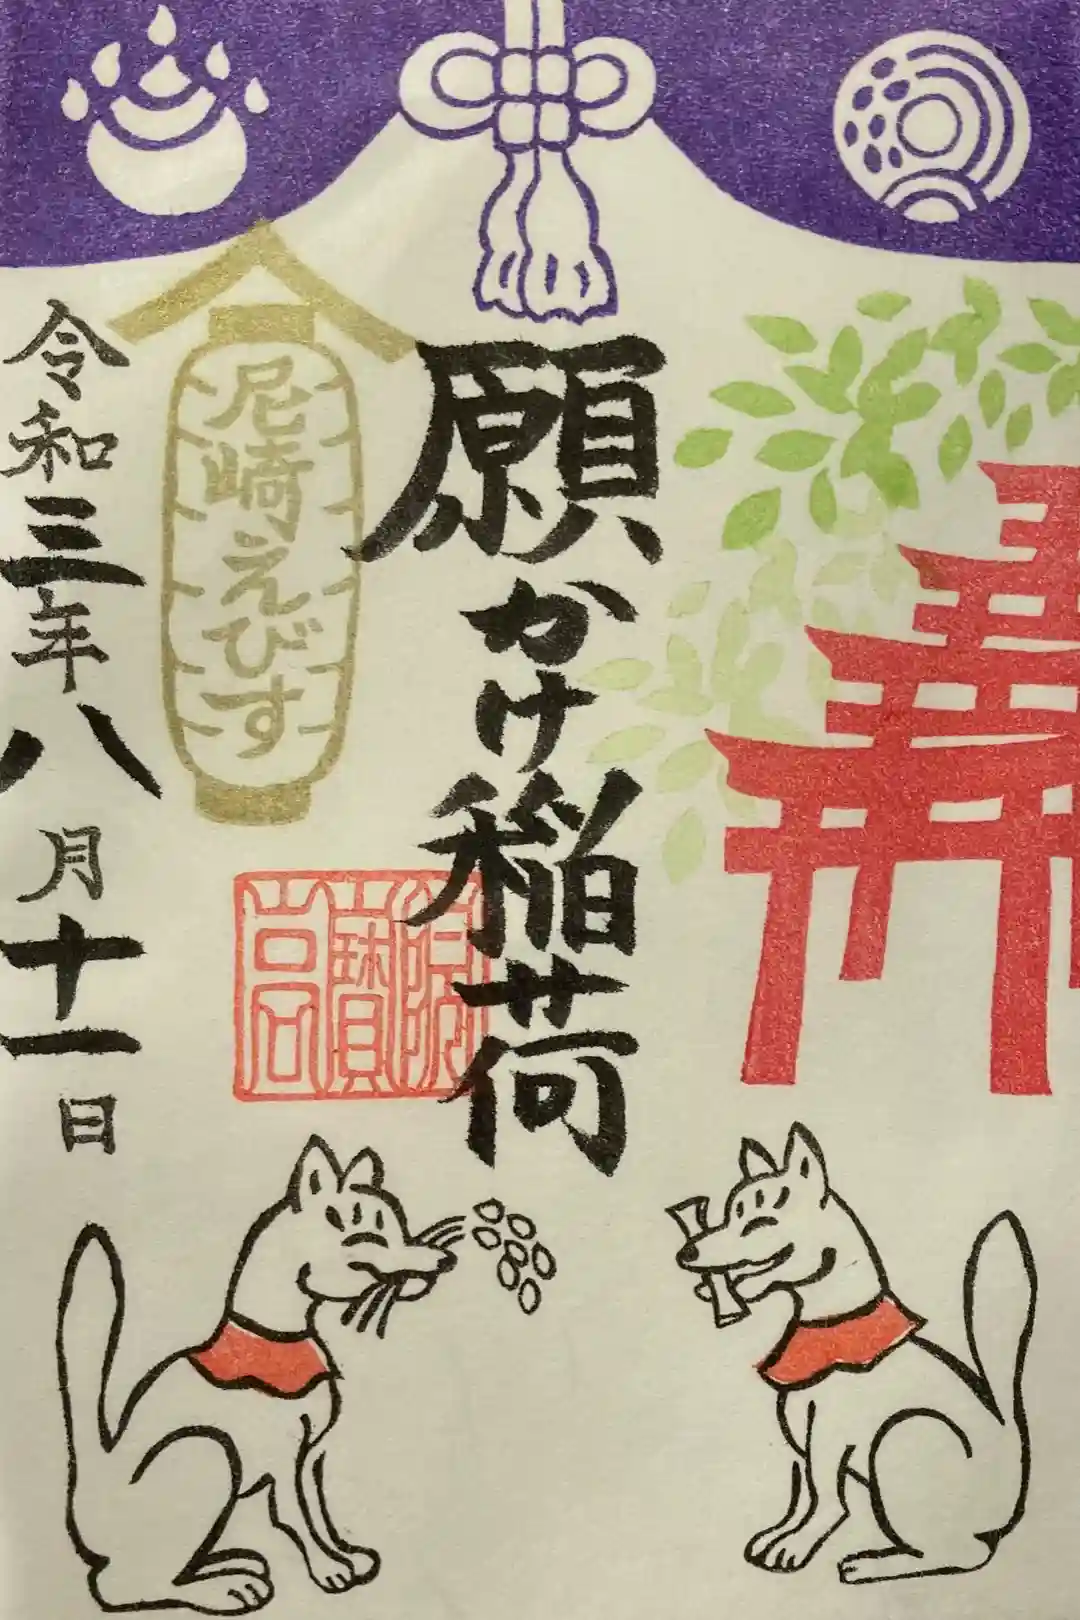 願かけ稲荷
尼崎えびす
令和三年八月十一日